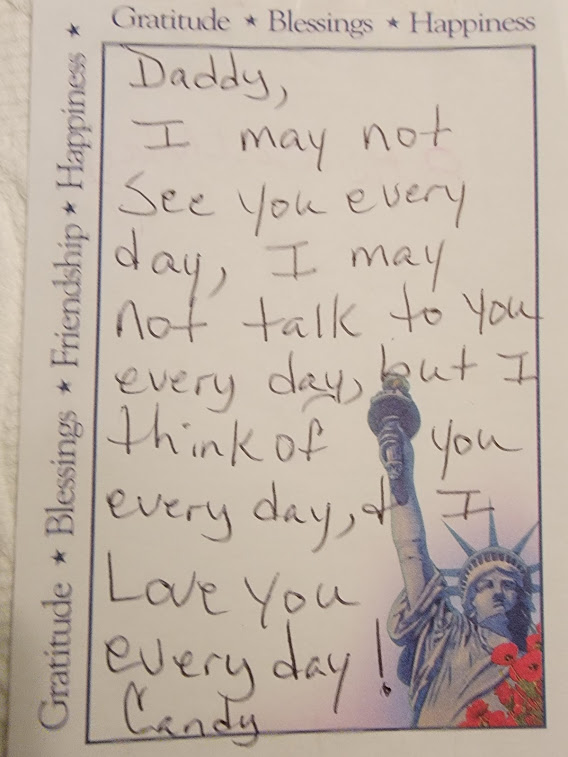 Gratitude ★ Blessings ★ Happiness
Gratitude ★ Blessings ★ Friendship ★ Happiness ★
Daddy,
I may not
See you every
day, I may
not talk to you
every day, but I
think of you
every day, & I
Love you
every day!
Candy